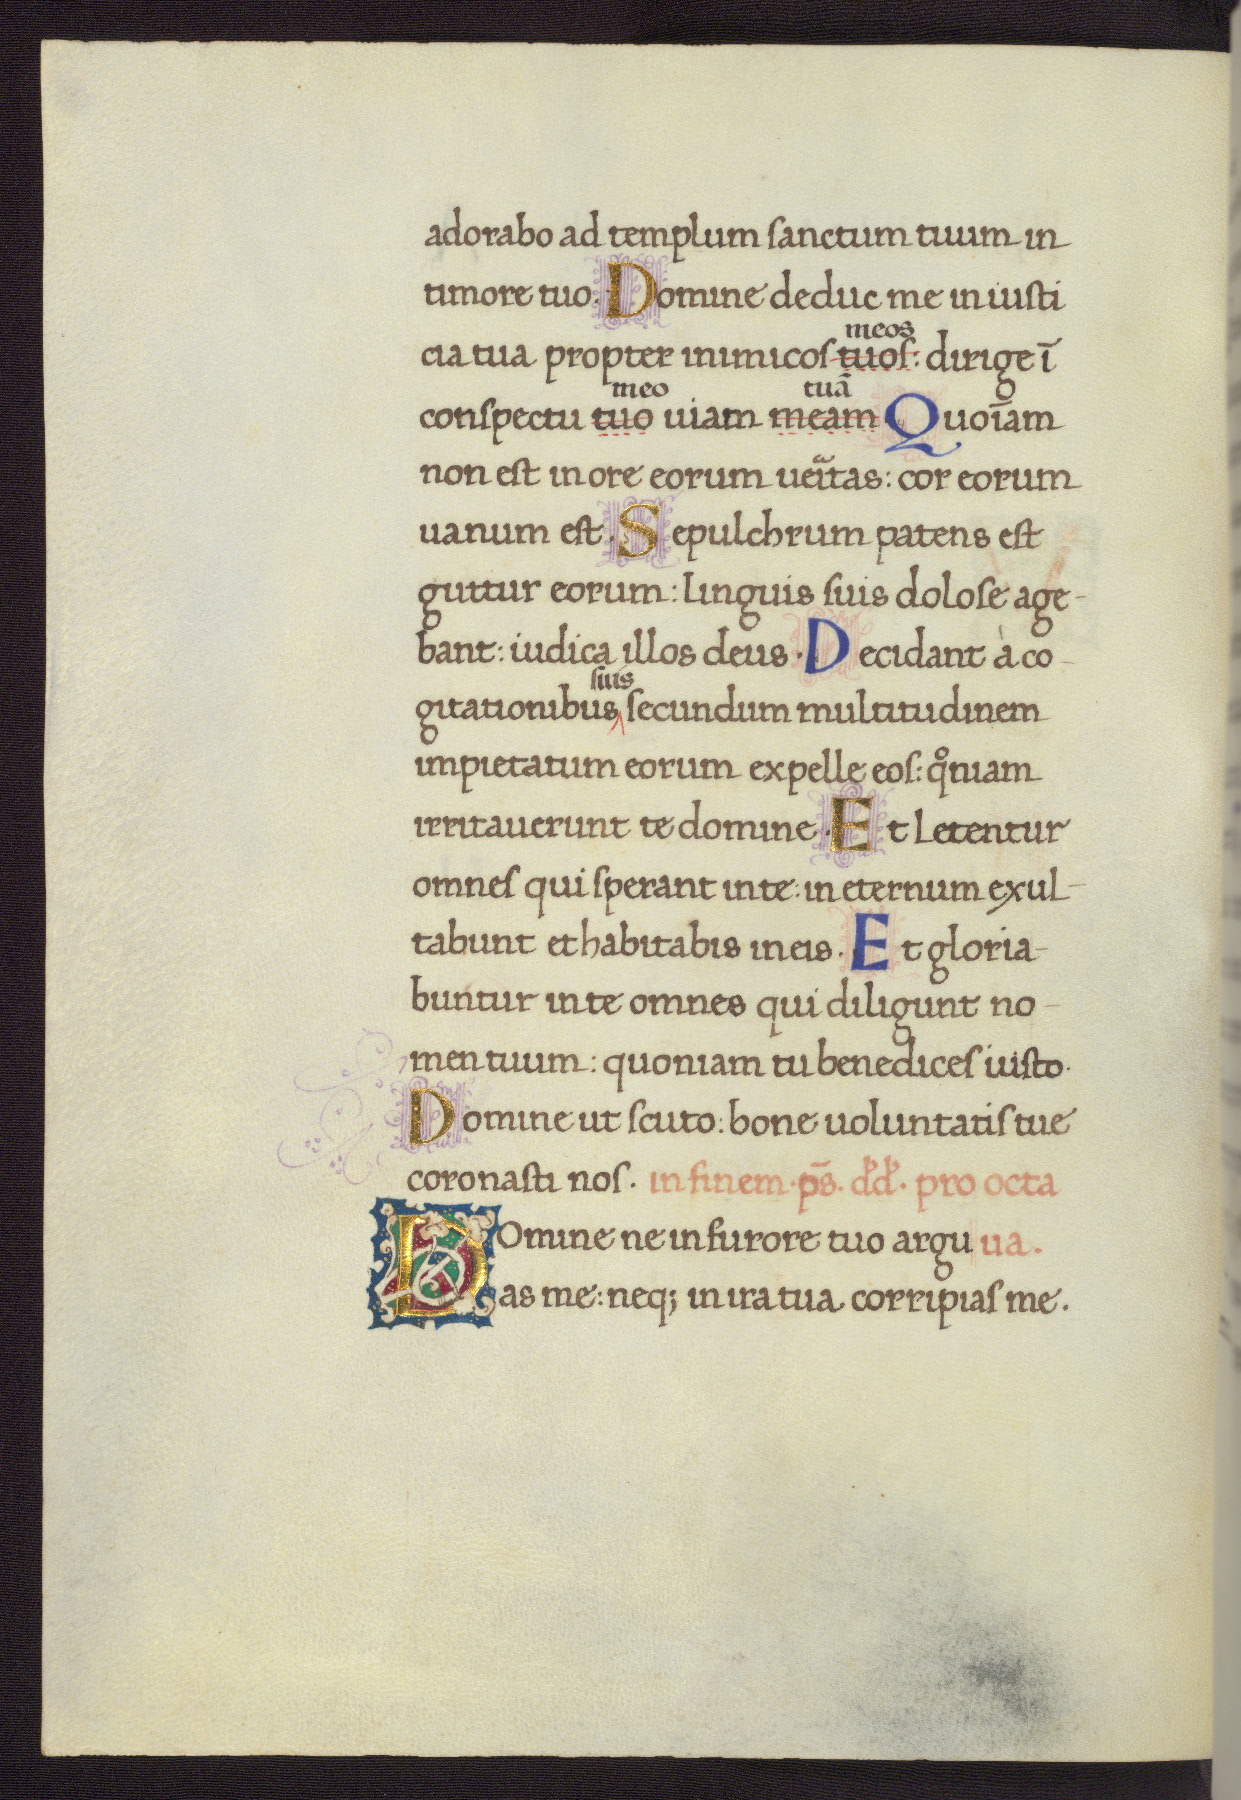 adorabo ad templum ſanctum tuum in
timore tuo. Domine deduc me in iuſti
meos
cia tua propter inimicoſ tuoſ: dirige ī
meo tuā o
conſpectu tuo uiam meam. Quoīam
non eſt in ore eorum ueītas: cor eorum
uanum eſt. Sepulchrum patens eſt
guttur eorum: linguis ſuis doloſe age-
bant: iudica illos deus. Decidant à co-
ſuis
gitationibus ſecundum multitudinem
impietatum eorum expelle eoſ: qͦniam
irritauerunt te domine. Et letentur
omneſ qui ſperant in te: in eternum exul-
tabunt et habitabis in eis. Et gloria-
buntur in te omnes qui diligunt no-
men tuum: quoniam tu benediceſ iuſto.
Domine ut ſcuto: bone uoluntatiſ tue
coronaſti noſ. in finem. pſ̄. dd. pro octa
DOmine ne in furore tuo argu ua.
as me: neq; in ira tua corripiaſ me.